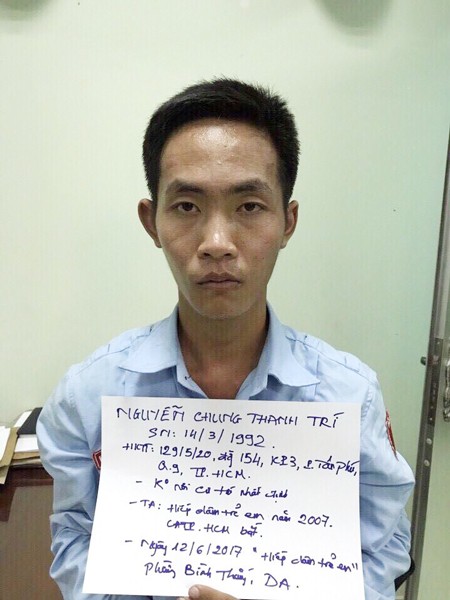 NGUYỄN CHUNG THANH TRÍ
SN: 14/3/1992.
HKTT: 129/5/20, 154, KP3, P. Tân Phú,
Q.9, TP. HCM.
- K° nơi cư trú nhất định
- TA: Hiếp dâm trẻ em năm 2007.
CATP. HCM bắt.
- Ngày 12/6/2017 "Hiếp dâm trẻ em"
Bình Thắng, DA.